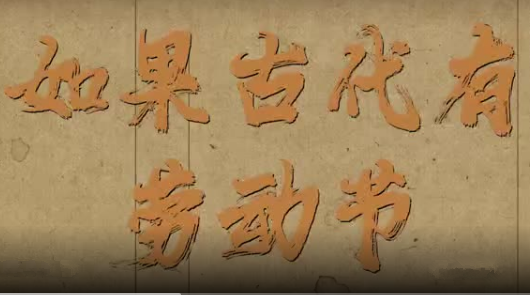 如果古代有
劳动节